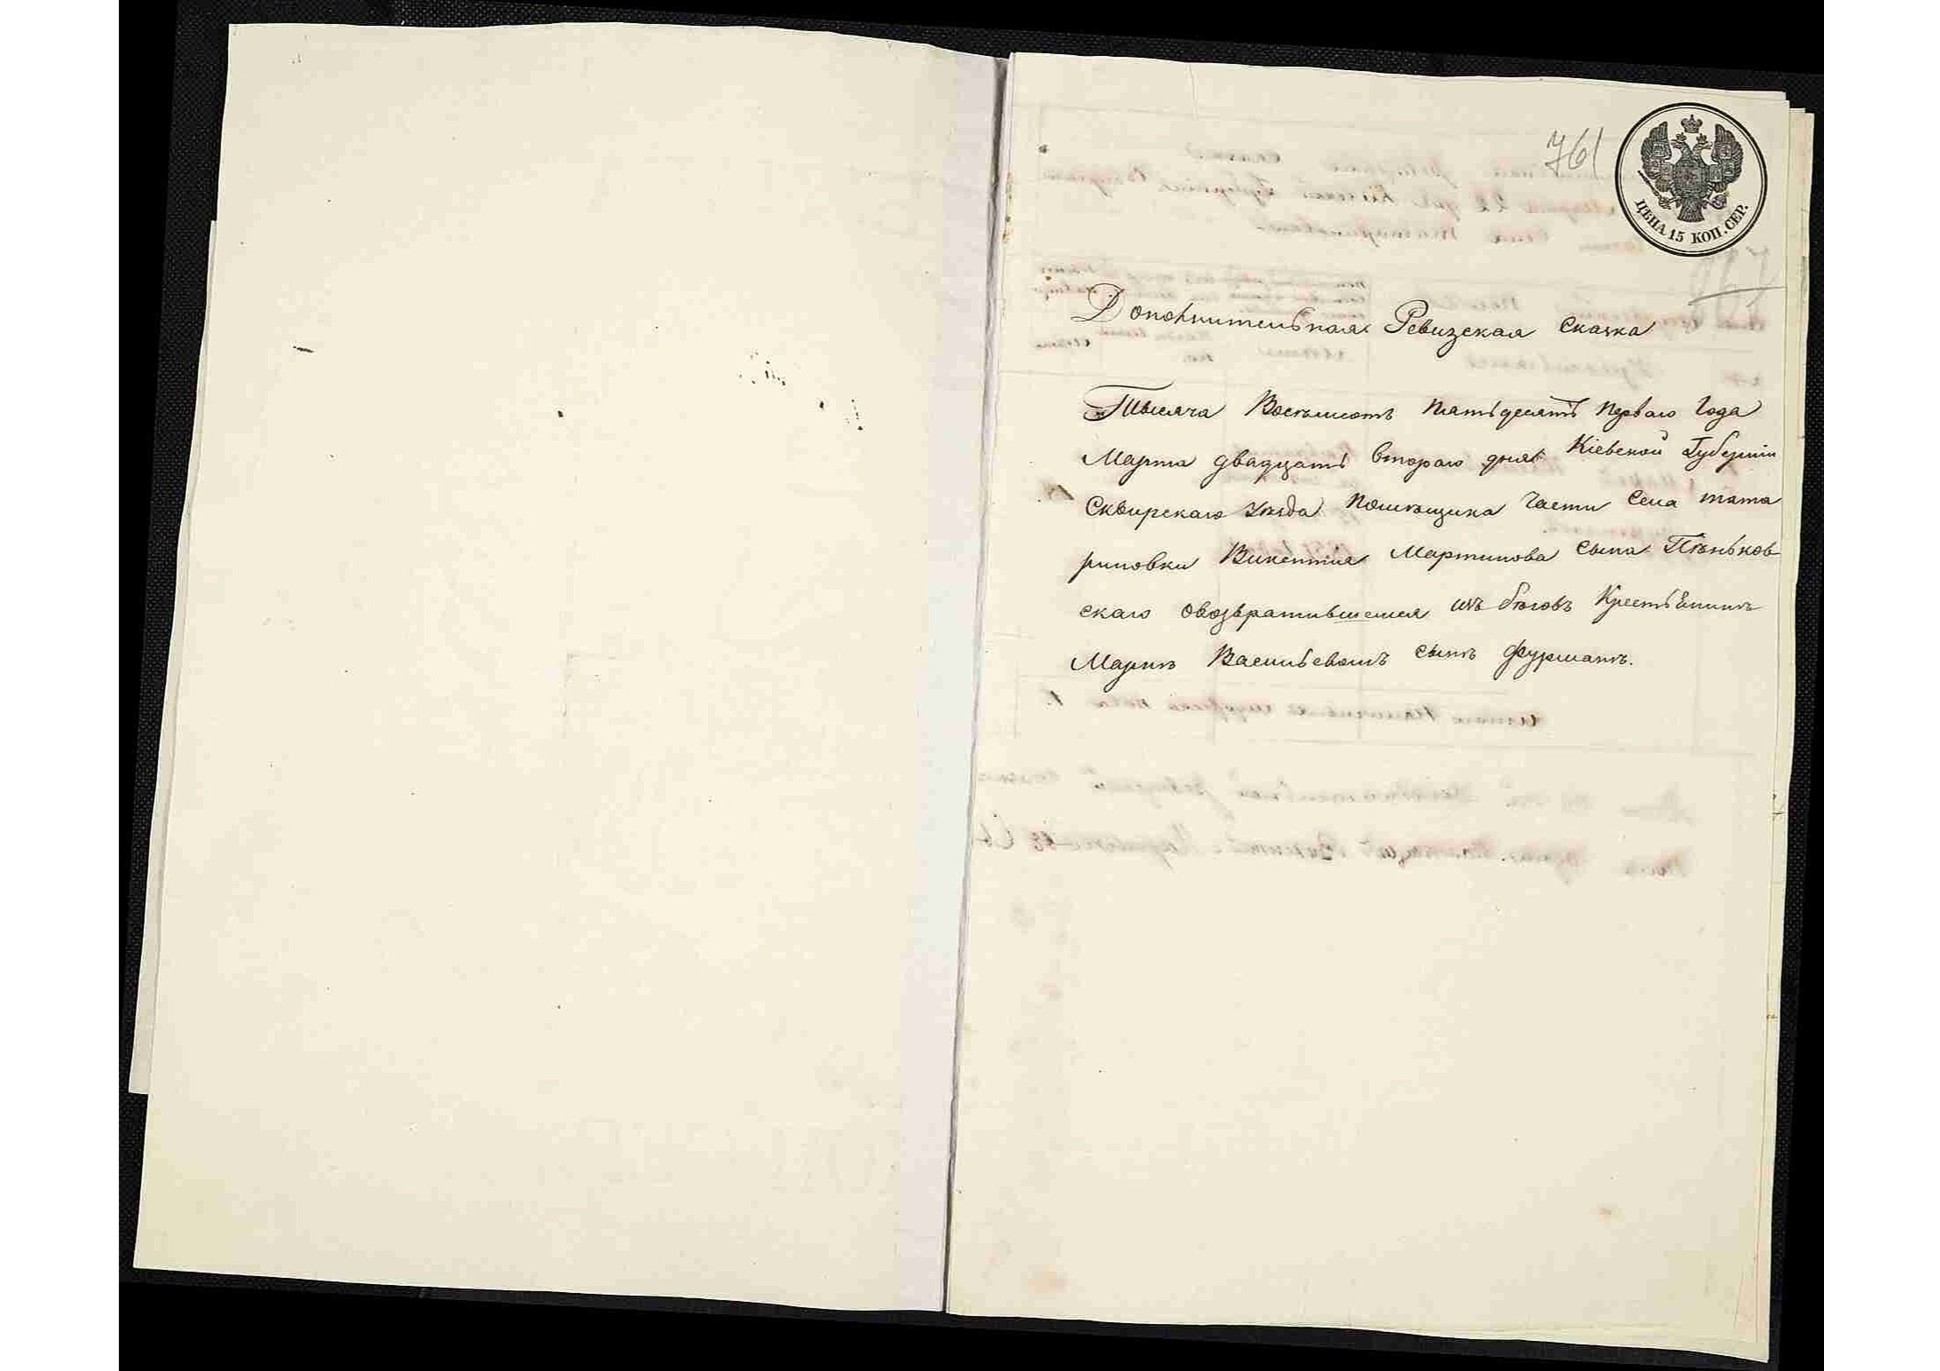 761
ЦѢНА 15 КОП. СЕР.
Дополнительная Ревизская сказка
Тысяча Восемьсотъ пятьдесятъ перваго Года
Марта двадцать втораго дня Кіевской Губерніи
Сквирскаго уѣзда Помѣщика части Села тата
риновки Викентія Мартинова сына Пѣньков-
скаго овозвратившемся изъ бѣговъ Крестьянинѣ
Васильевомъ сынѣ Фурманѣ.